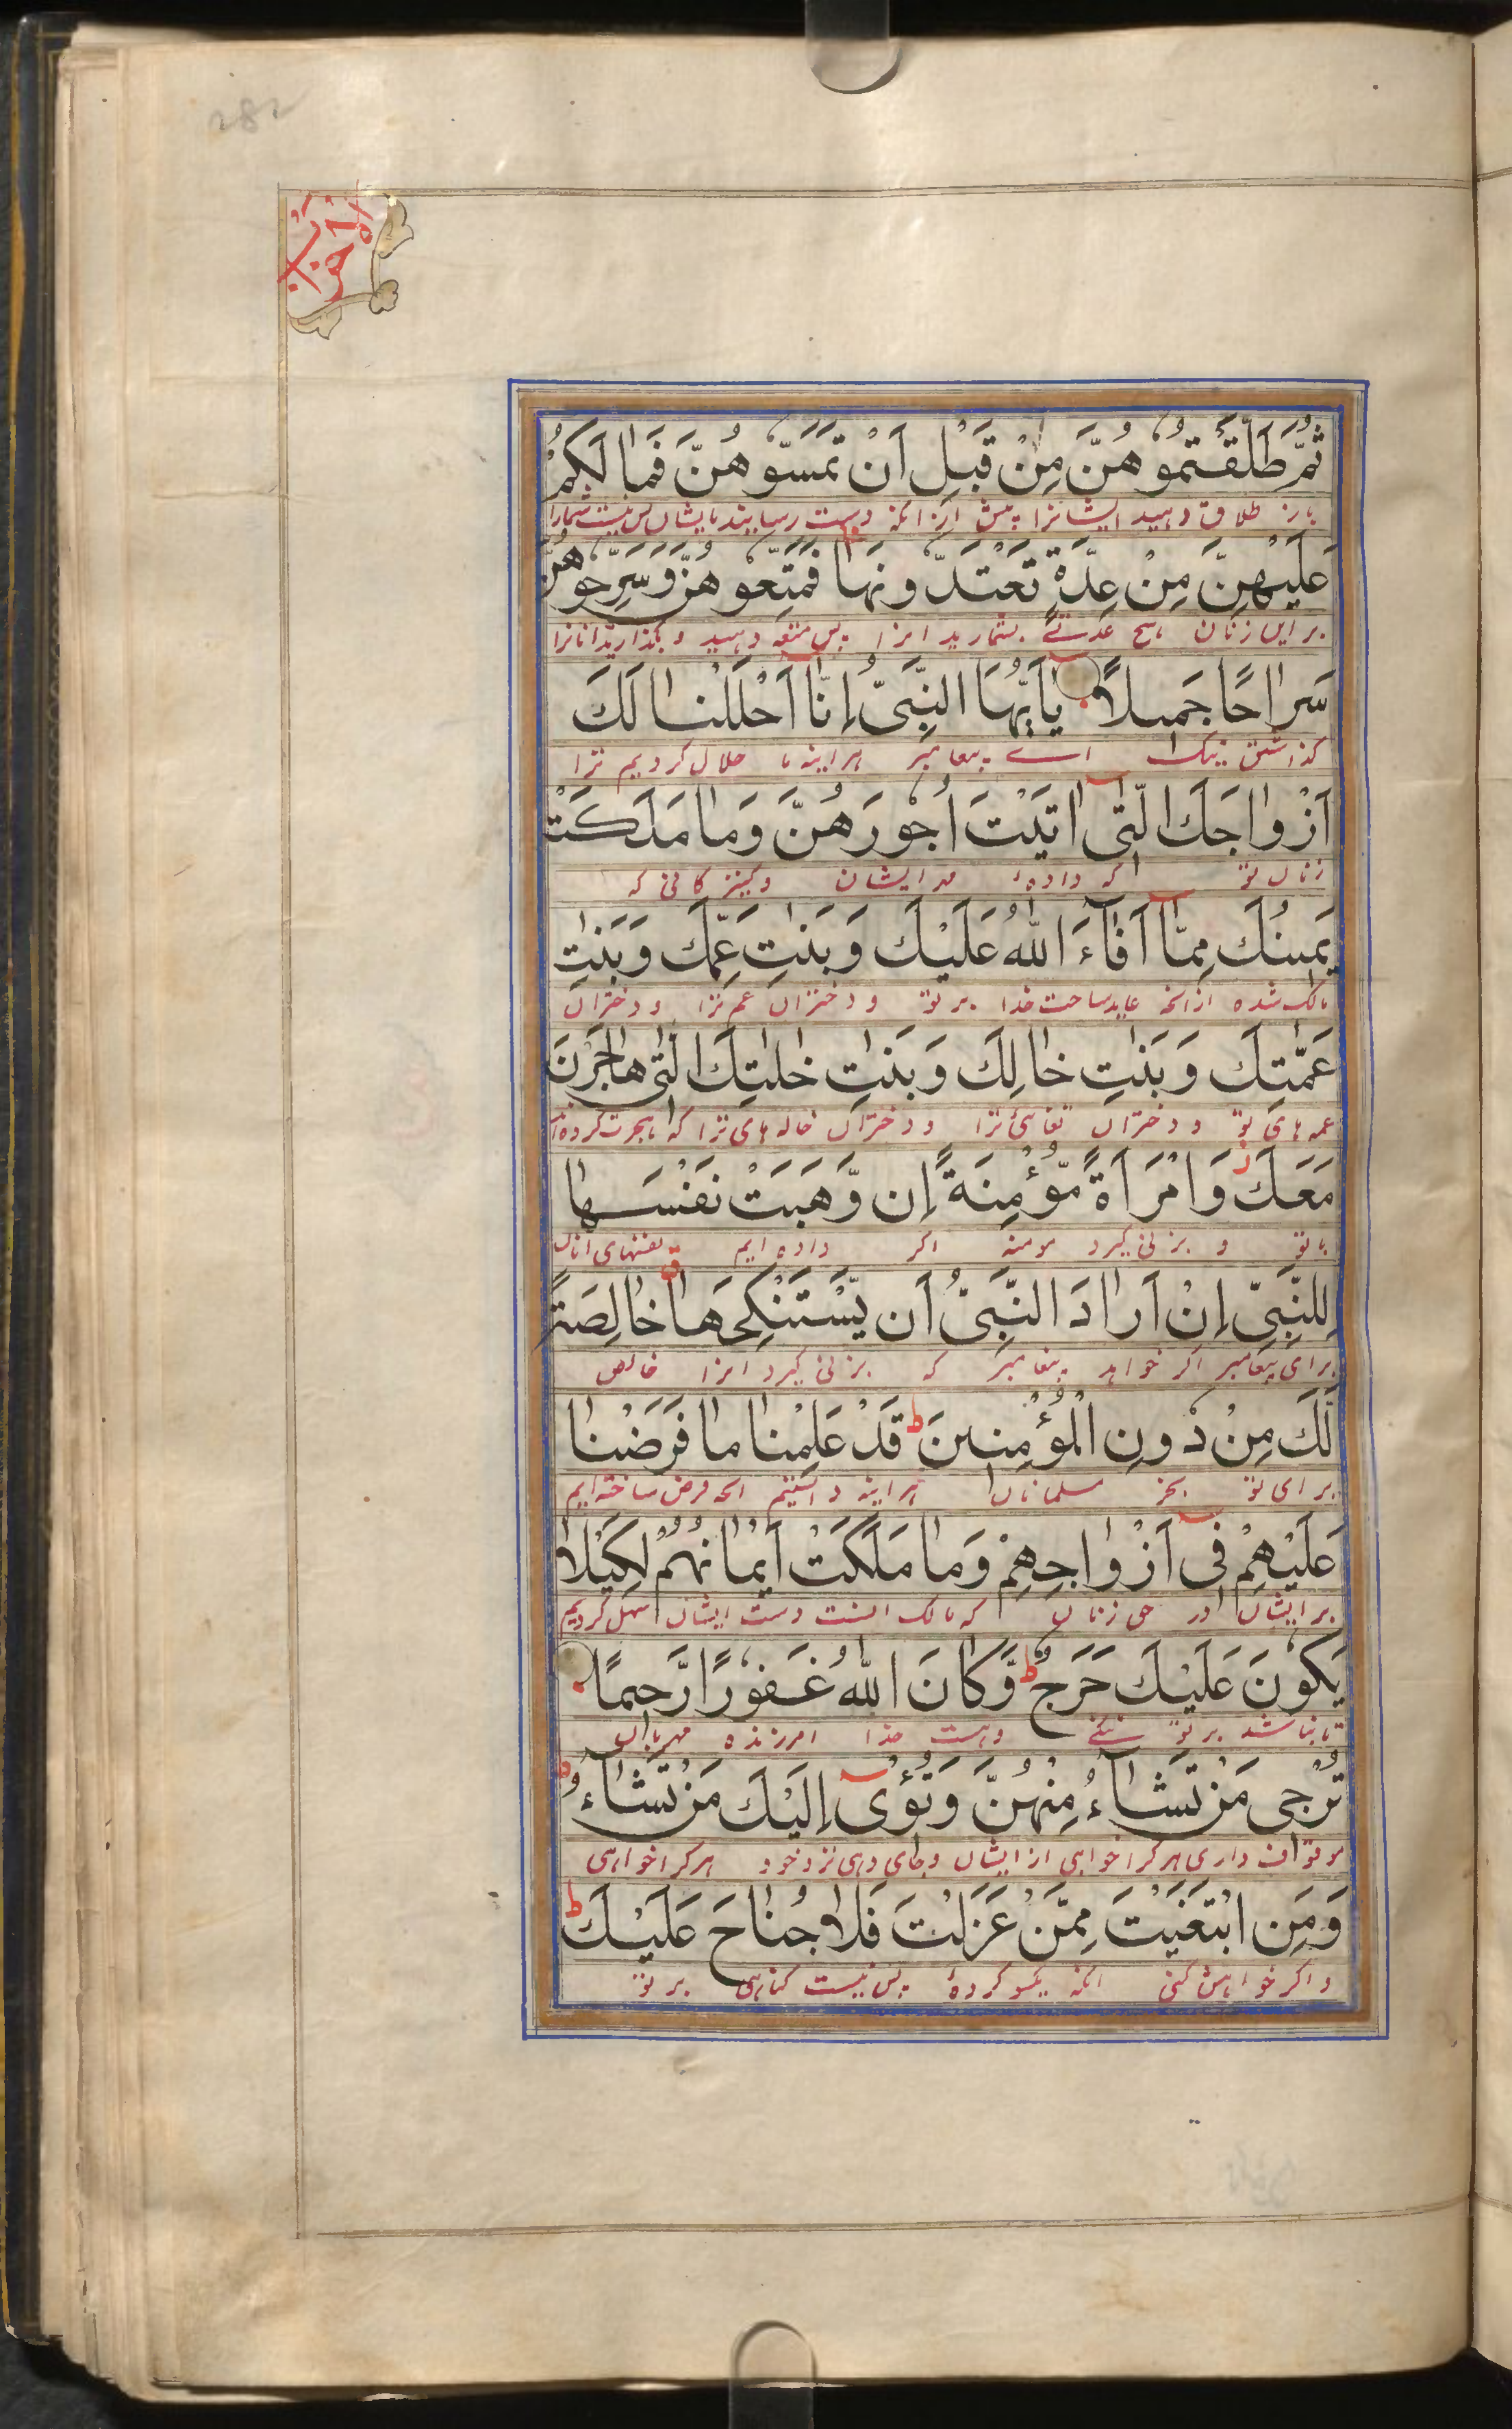 الاحزاب
ثُمَّ طَلَّقْتُمُوهُنَّ مِنْ قَبْلِ اَنْ تَمَسُّوهُنَّ فَمَا لَكُمْ
باز طلاق دهید ایشانرا پیش از انکه دست رسانید بایشان پس نیست شمارا
عَلَيْهِنَّ مِنْ عِدَّةٍ تَعْتَدُّونَهَا فَمَتِّعُوهُنَّ وَسَرِّحُوهُنَّ
بر این زنان هیچ عدتے بشمارید انرا پس متعه دهید و بگذارید انانرا
سَرَاحًا جَمِيلًا يٰاَيُّهَا النَّبِىُّ اِنَّا اَحْلَلْنَا لَكَ
گذاشتن نیک اے پیغامبر هراینه ما حلال کردیم ترا
اَزْوَاجَكَ الّٰتِى اٰتَيْتَ اُجُورَهُنَّ وَمَا مَلَكَتْ
زنان تو که دادهٔ مهر ایشان و کنیزکانی که
يَمِينُكَ مِمَّا اَفَاءَ اللّٰهُ عَلَيْكَ وَبَنٰتِ عَمِّكَ وَبَنٰتِ
مالک شده از انچه عاید ساخت خدا بر تو و دختران عم ترا و دختران
عَمّٰتِكَ وَبَنٰتِ خَالِكَ وَبَنٰتِ خٰلٰتِكَ الّٰتِى هَاجَرْنَ
عمه های تو و دختران ترا و دختران خاله های ترا که هجرت کرده اند
مَعَكَ وَامْرَاَةً مُّؤْمِنَةً اِن وَّهَبَتْ نَفْسَهَا
با تو و بزنی گیرد مومنه اگر داده ایم نفسهای انان
لِلنَّبِىِّ اِنْ اَرَادَ النَّبِىُّ اَن يَّسْتَنْكِحَهَا خَالِصَةً
برای پیغامبر اگر خواهد پیغامبر که بزنی گیرد انرا خالص
لَّكَ مِنْ دُونِ الْمُؤْمِنِينَ ط قَدْ عَلِمْنَا مَا فَرَضْنَا
برای تو بجز مسلمانان هراینه دانستیم انچه فرض ساخته ایم
عَلَيْهِمْ فِى اَزْوَاجِهِمْ وَمَا مَلَكَتْ اَيْمَانُهُمْ لِكَيْلَا
بر ایشان در حق زنان که مالک است دست ایشان سهل کردیم
يَكُونَ عَلَيْكَ حَرَجٌ ط وَّكَانَ اللّٰهُ غَفُورًا رَّحِيمًا
تا نباشد بر تو تنگے و هست خدا امرزنده مهربان
تُرْجِى مَنْ تَشَاءُ مِنْهُنَّ وَتُؤْى اِلَيْكَ مَنْ تَشَاءُ ط
موقوف داری هر کرا خواهی از ایشان و جای دهی نزد خود هر کرا خواهی
وَمَنِ ابْتَغَيْتَ مِمَّنْ عَزَلْتَ فَلَا جُنَاحَ عَلَيْكَ ط
و اگر خواهش کنی انکه یکسو کردهٔ پس نیست گناهی بر تو